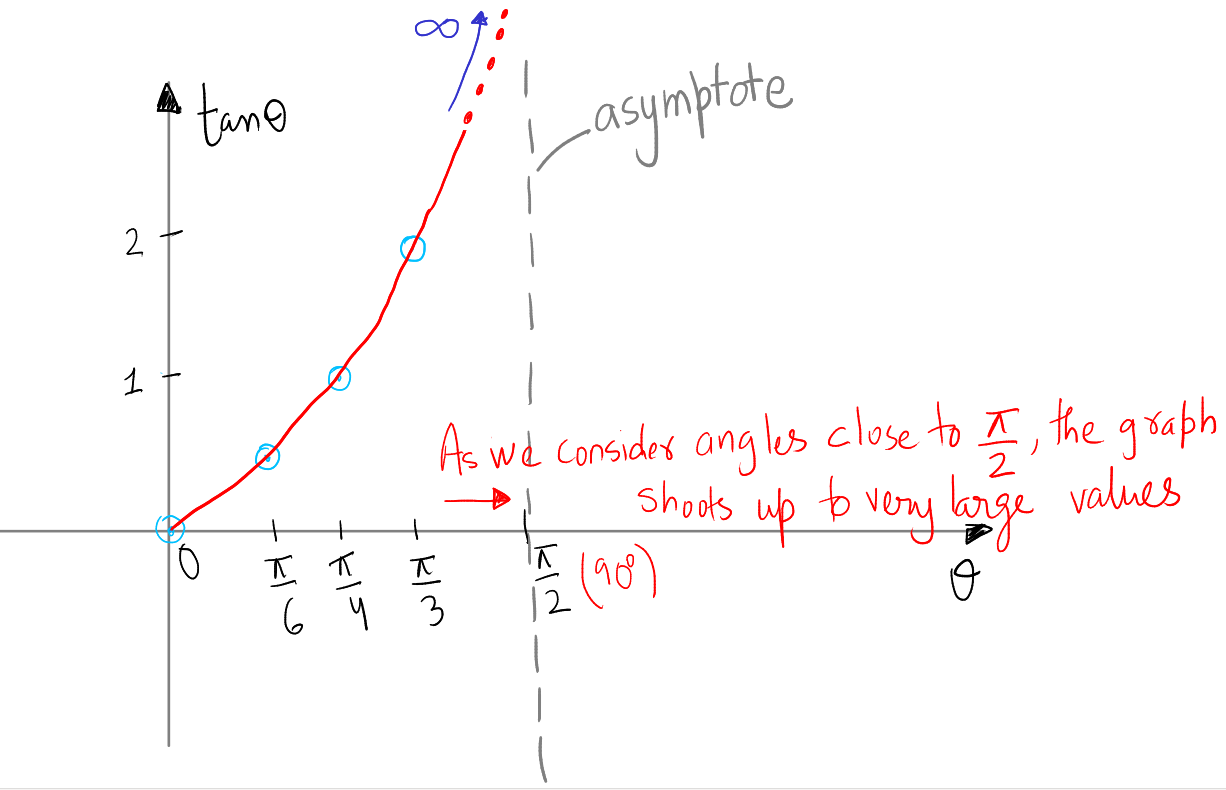 ∞
tanθ
asymptote
2
1
As we consider angles close to π/2, the graph
shoots up to very large values
0
π/6 π/4 π/3 π/2 (90°)
θ